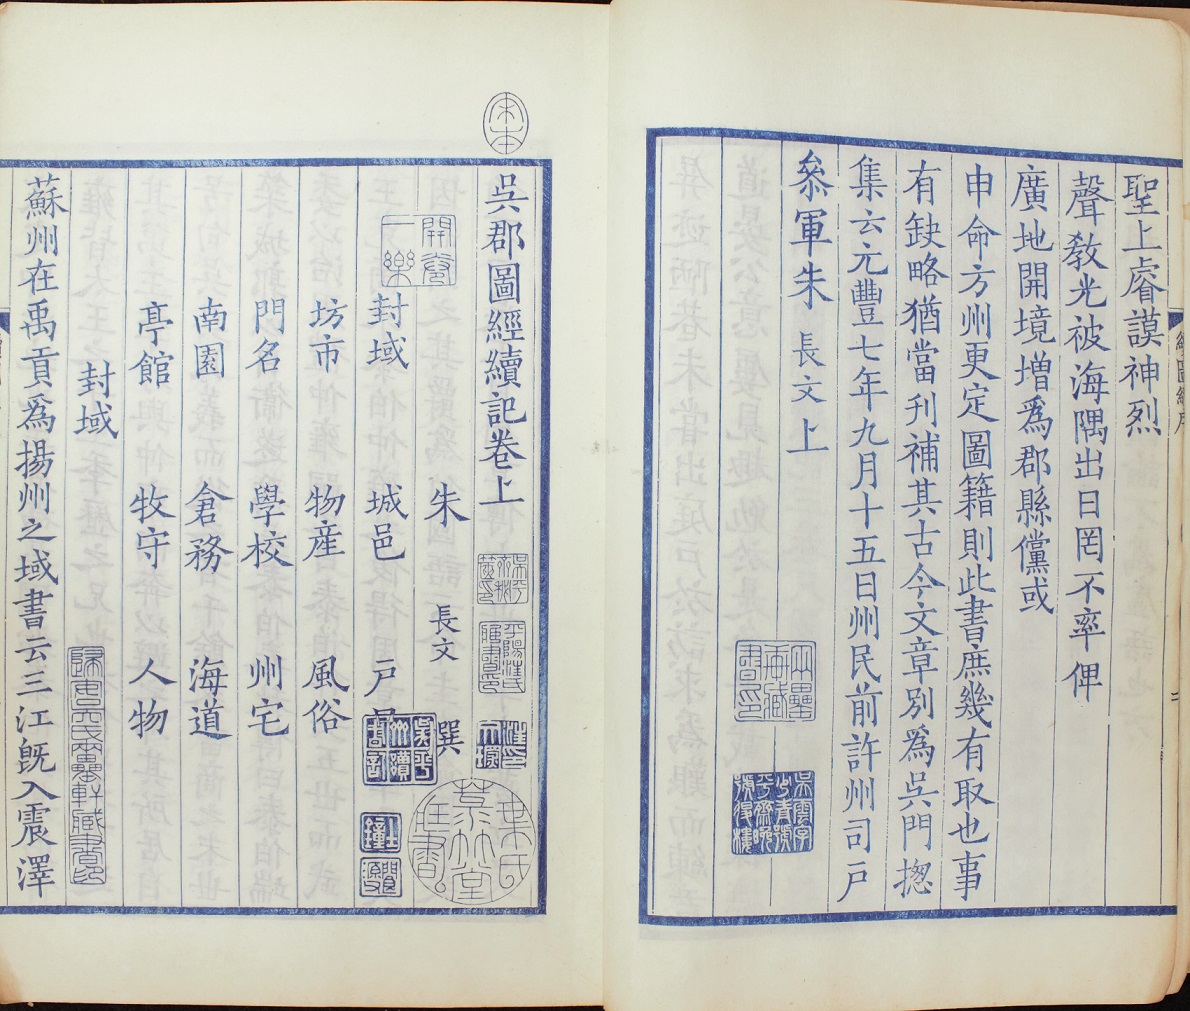 聖上睿謨神烈
聲敎光被海隅出日罔不率俾
廣地開境增爲郡縣儻或
申命方州更定圖籍則此書庶幾有取也事
有缺略猶當刊補其古今文章別爲吳門揔
集云元豐七年九月十五日州民前許州司戶
叅軍朱長文上
宋本
吳郡圖經續記卷上
朱長文撰
封域 城邑 戶
坊市 物產 風俗
門名 學校 州宅
南園 倉務 海道
亭館 牧守 人物
封域
蘇州在禹貢爲揚州之域書云三江旣入震澤
開卷一樂
葉氏菉竹堂藏書
歸安吳氏兩罍軒藏書印
兩罍軒藏書印